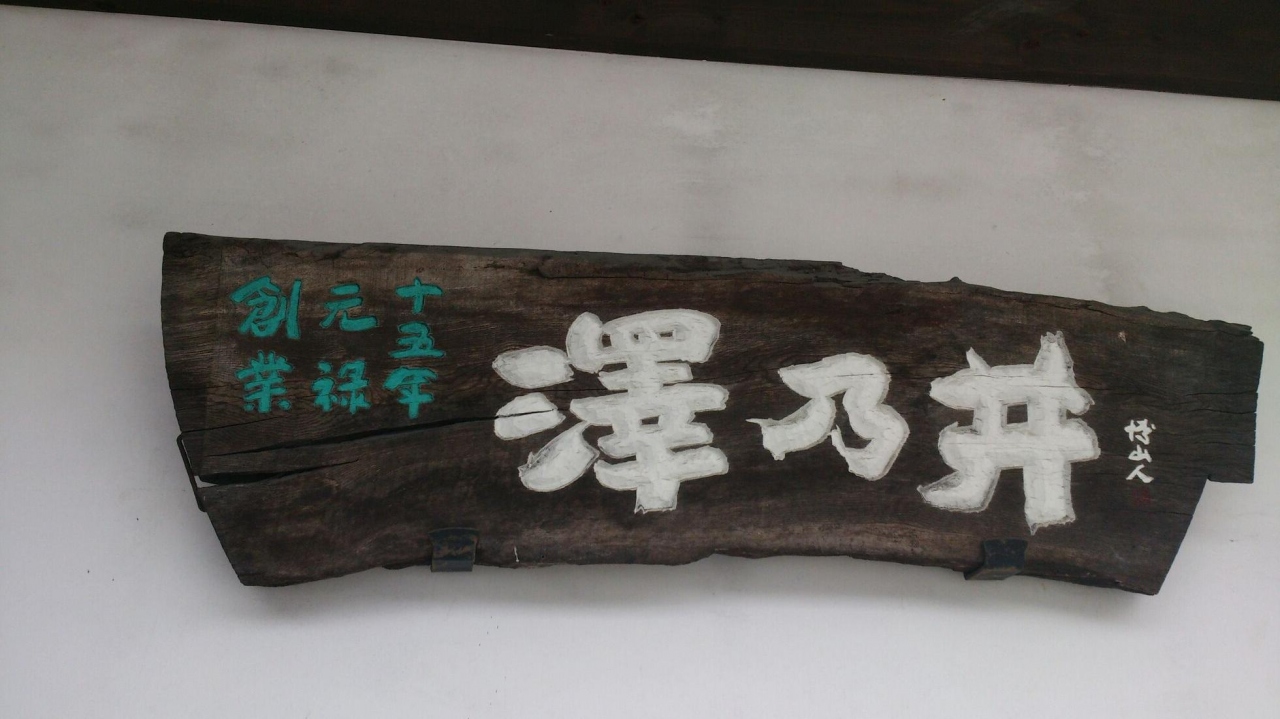 創業
元禄
十五年
澤乃井
博山人